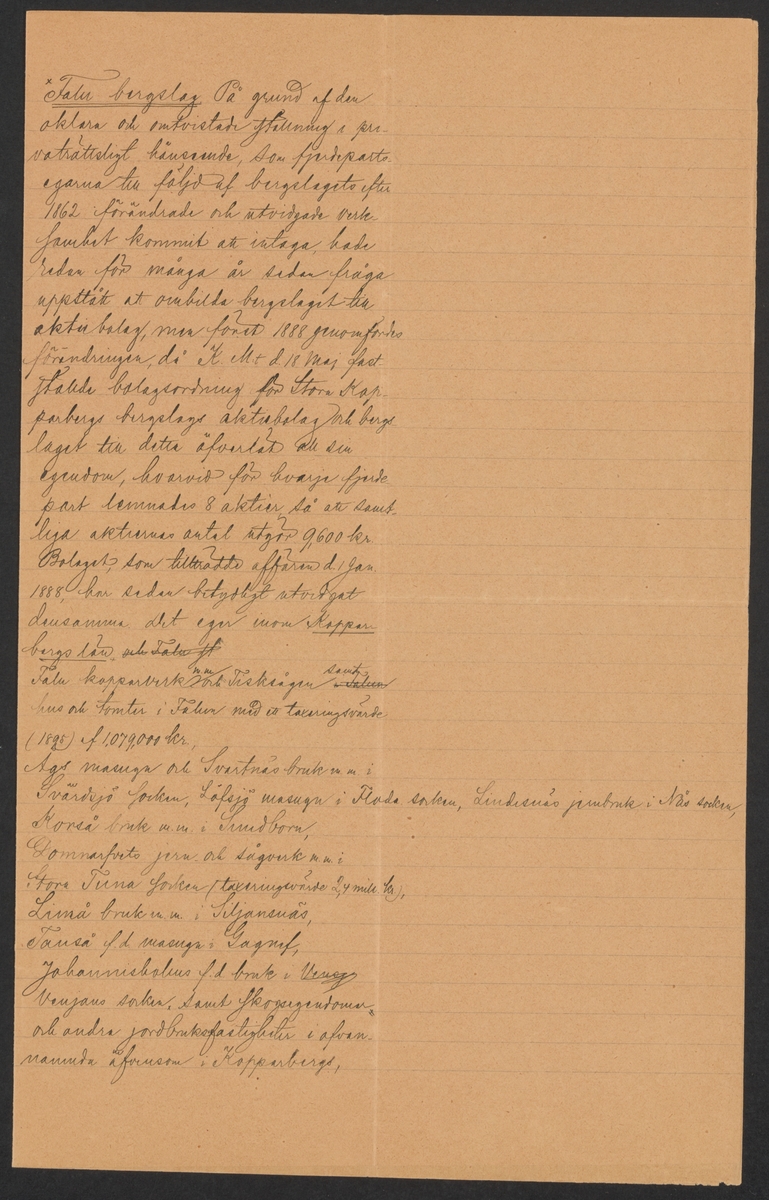 * Falu bergslag På grund af den
oklara och omtvistade ställning i pri-
vaträttsligt hänseende, som fjerdeparts-
egarna till följd af bergslagets efter
1862 förändrade och utvidgade verk-
samhet kommit att intaga, hade
redan för många år sedan fråga
uppstått at ombilda bergslaget till
aktiebolag, men först 1888 genomfördes
förändringen, då K. M:t d 18 Maj fast-
stälde bolagsordning för Stora Kop-
parbergs bergslags aktiebolag och bergs-
laget till detta öfverlät all sin
egendom, hvarvid för hvarje fjerde-
part lemnades 8 aktier, så att samt-
liga aktiernas antal utgör 9,600 kr
Bolaget, som tillträdde affären d. 1 Jan.
1888, har sedan betydligt utvidgat
densamma. Det eger inom Koppar-
bergs län och Falu st
Falu kopparverk m.m. och Tisksågen samt Falun
hus och tomter i Falun med ett taxeringsvärde
(1895) af 1,079,000 kr.,
Ågs masugn och Svartnäs bruk m.m. i
Svärdsjö socken, Löfsjö masugn i Floda socken, Lindesnäs jernbruk i Nås socken,
Korså bruk m.m. i Smedborn,
Domnarfvets jern- och sågverk m.m. i
Stora Tuna socken (taxeringsvärde 2,4 mill. kr),
Limå bruk m.m. i Siljansnäs,
Tanså f.d. masugn i Gagnef,
Johannisholms f.d. bruk i Venj
Venjans socken, samt skogsegendomar
och andra jordbruksfastigheter i ofvan-
nämnda äfvensom i Kopparbergs,